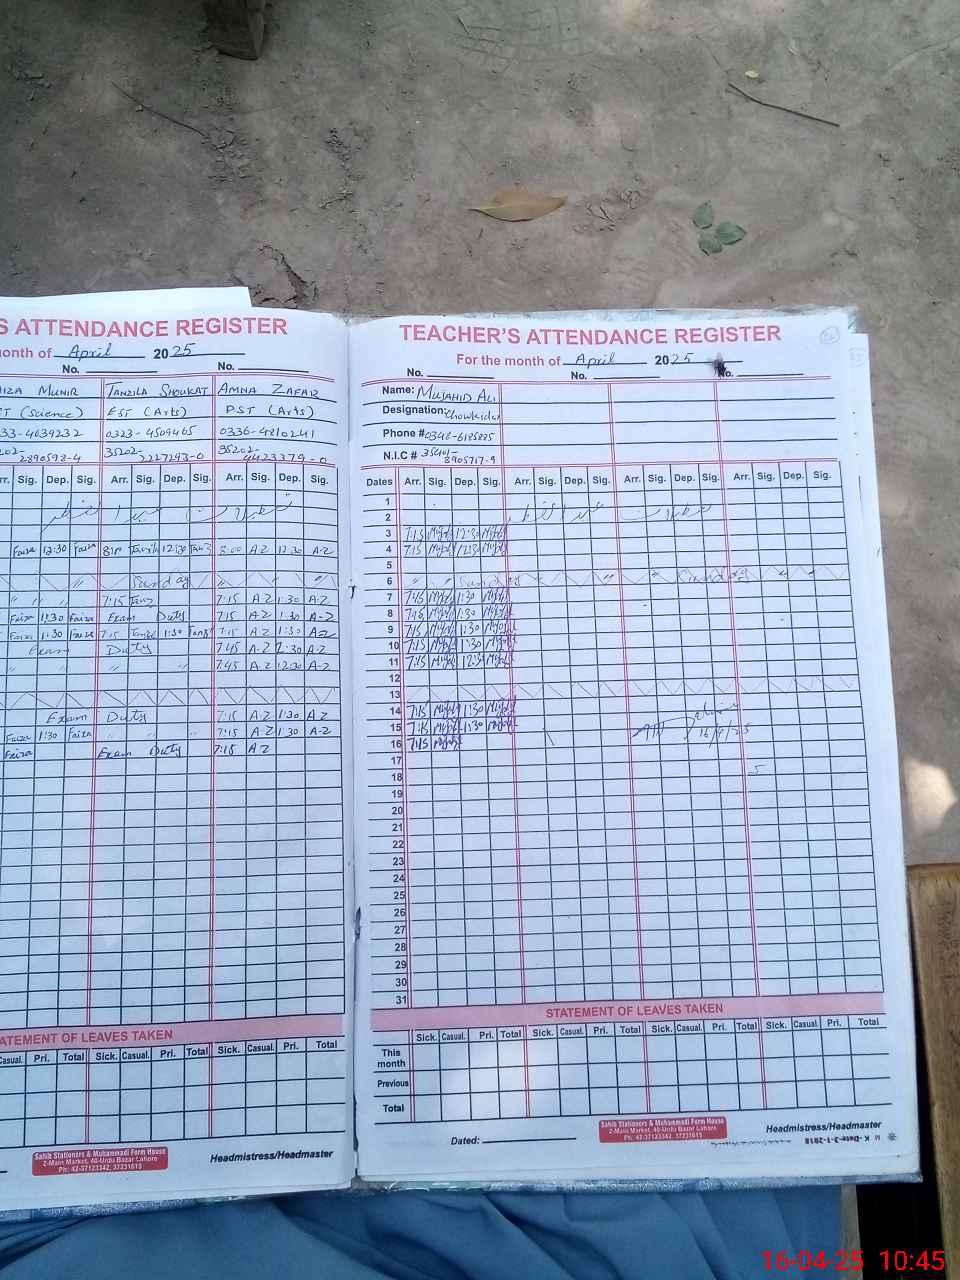 S ATTENDANCE REGISTER
onth of April 2025
No. No.
IZA MUNIR TANZILA SHOUKAT AMNA ZAFAR
T (Science) EST (Arts) PST (Arts)
33-4639232 0323-4509465 0336-4810241
202- 35202- 35202-
2890598-4 2227293-0 4423379-0
rr. Sig. Dep. Sig. Arr. Sig. Dep. Sig. Arr. Sig. Dep. Sig.
Faiza 12:30 Faiza 12:30 8:00 A.Z 12:30 A.Z
" Sunday " "
" " " 7:15 Tanz 7:15 A.Z 1:30 A.Z
Faiza 1:30 Faiza Exam Duty 7:15 A.Z 1:30 A-Z
Faiza 1:30 Faiza 7:15 Tanzil 1:30 Tanz 7:15 A.Z 1:30 A-Z
Exam Duty 7:45 A.Z 12:30 A-Z
" " " " 7:45 A.Z 12:30 A-Z
Exam Duty 7:15 A-Z 1:30 A.Z
Faiza 1:30 Faiza 7:15 A.Z 1:30 A-Z
Faiza Exam Duty 7:15 A.Z
ATEMENT OF LEAVES TAKEN
Casual. Pri. Total Sick. Casual. Pri. Total Sick. Casual. Pri. Total
Sahib Stationers & Muhammadi Form House
2-Main Market, 40-Urdu Bazar Lahore
Ph: 42-37123342, 37231615
Headmistress/Headmaster
TEACHER'S ATTENDANCE REGISTER
For the month of April 2025
No. No. No.
Name: MUJAHID ALI
Designation: Chowkidar
Phone # 0348-6185825
N.I.C # 35401-
8905717-9
Dates Arr. Sig. Dep. Sig. Arr. Sig. Dep. Sig. Arr. Sig. Dep. Sig. Arr. Sig. Dep. Sig.
1
2
3 7:15 12:30
4 7:15 12:30
5
6 " " Sunday " " " Sunday " "
7 7:15 1:30
8 7:15 1:30
9 7:15 1:30
10 7:15 1:30
11 7:15 12:30
12
13
14 7:15 1:30
15 7:15 1:30
16/4/25
16 7:15
17
18
19
20
21
22
23
24
25
26
27
28
29
30
31
STATEMENT OF LEAVES TAKEN
Sick. Casual. Pri. Total Sick. Casual. Pri. Total Sick. Casual. Pri. Total Sick. Casual. Pri. Total
This month
Previous
Total
Dated:
Sahib Stationers & Muhammadi Form House
2-Main Market, 40-Urdu Bazar Lahore
Ph: 42-37123342, 37231615
Headmistress/Headmaster
M K-Date-3-1-2018
16-04-25 10:45